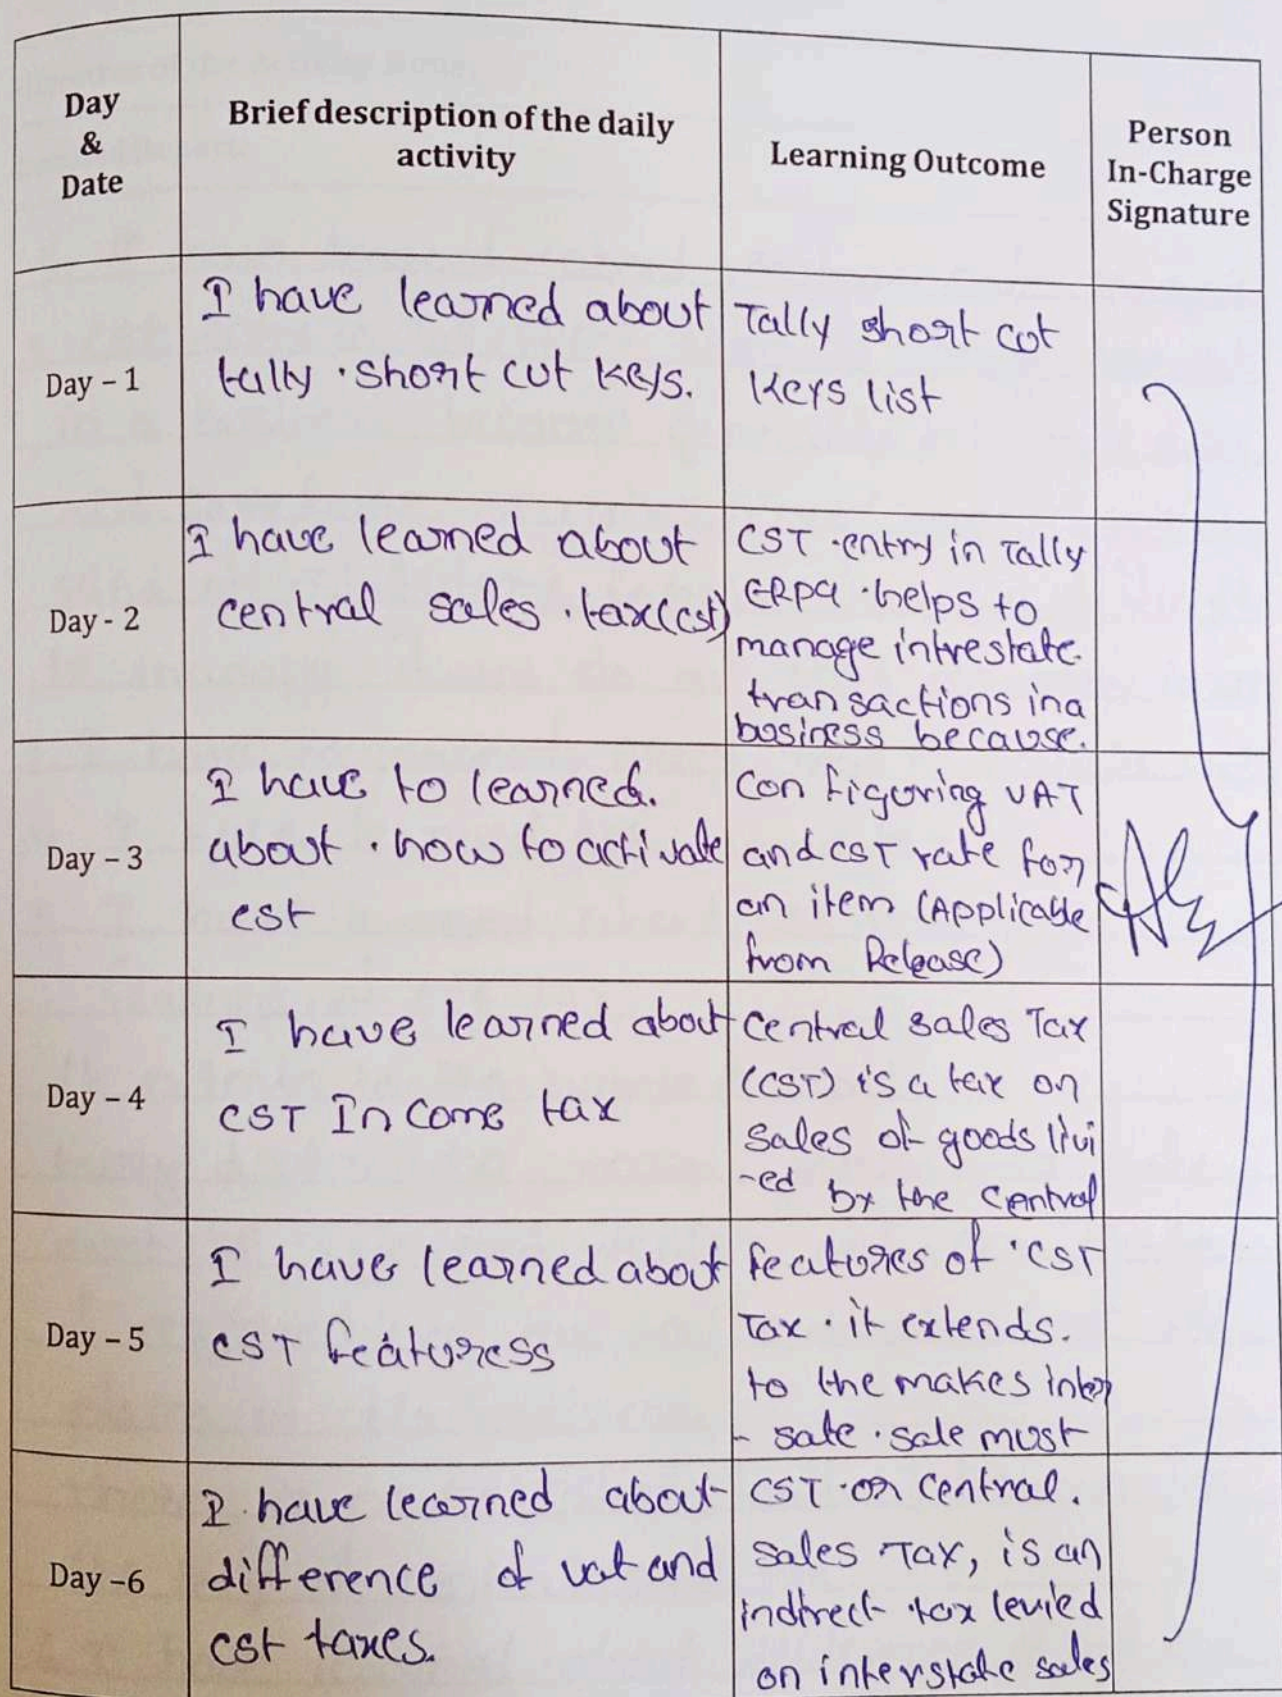 Day
&
Date
Brief description of the daily
activity
Learning Outcome
Person
In-Charge
Signature
Day – 1
I have learned about
tally . short cut keys.
Tally short cut
Keys list
Day - 2
I have learned about
central sales . tax(cst)
CST .entry in Tally
ERP9 .helps to
manage intrestate.
transactions in a
business because.
Day – 3
I have to learned.
about . how to activate
cst
Configuring VAT
and CST rate for
an item (Applicable
from Release)
Day – 4
I have learned about
CST Income tax
Central Sales Tax
(CST) is a tax on
sales of goods livi
-ed by the central
Day – 5
I have learned about
CST featuress
features of 'CST
Tax . it extends.
to the makes inter
- sate . sale must
Day –6
I have learned about
difference of vat and
cst taxes.
CST .or Central.
Sales Tax, is an
indirect tax levied
on interstate sales